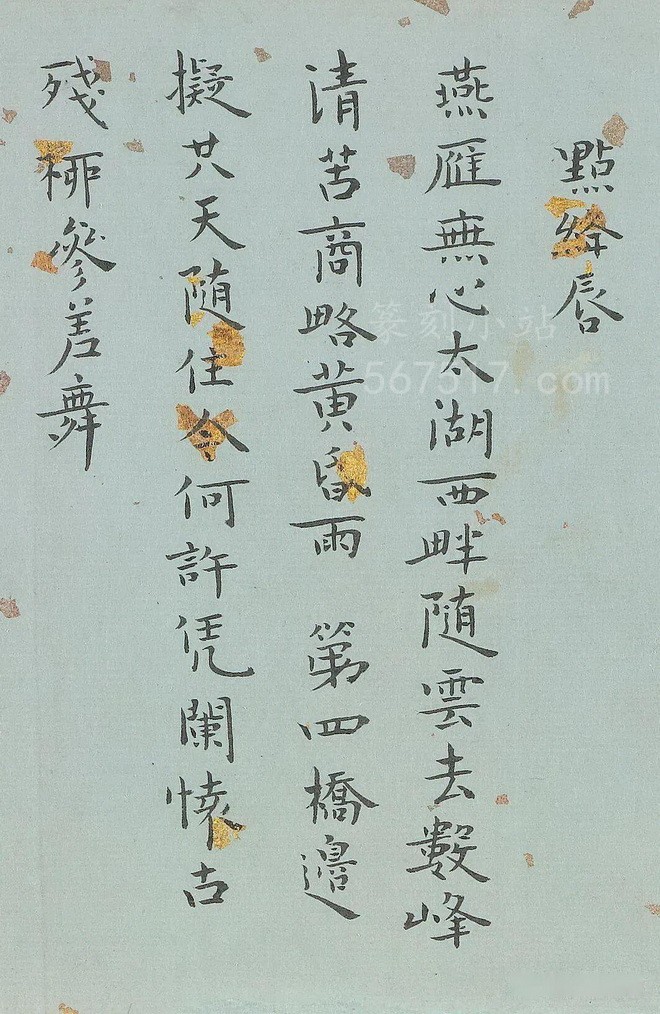 點絳唇
燕雁無心太湖西畔隨雲去數峰
清苦商略黃昏雨 第四橋邊
擬共天随住今何許凭闌懷古
殘柳參差舞
篆刻小站
567517.com